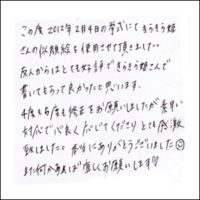 この度2012年2月4日の挙式にてきらきら姫
さんの似顔絵を使用させて頂きました。
友人からはとても好評できらきら姫さんで
書いてもらって良かったと思います。
4度も5度も修正をお願いしましたが素早い
対応で心良く応じてくださり とても感激
致しました。本当にありがとうございました☺
また何かあれば宜しくお願いします♡